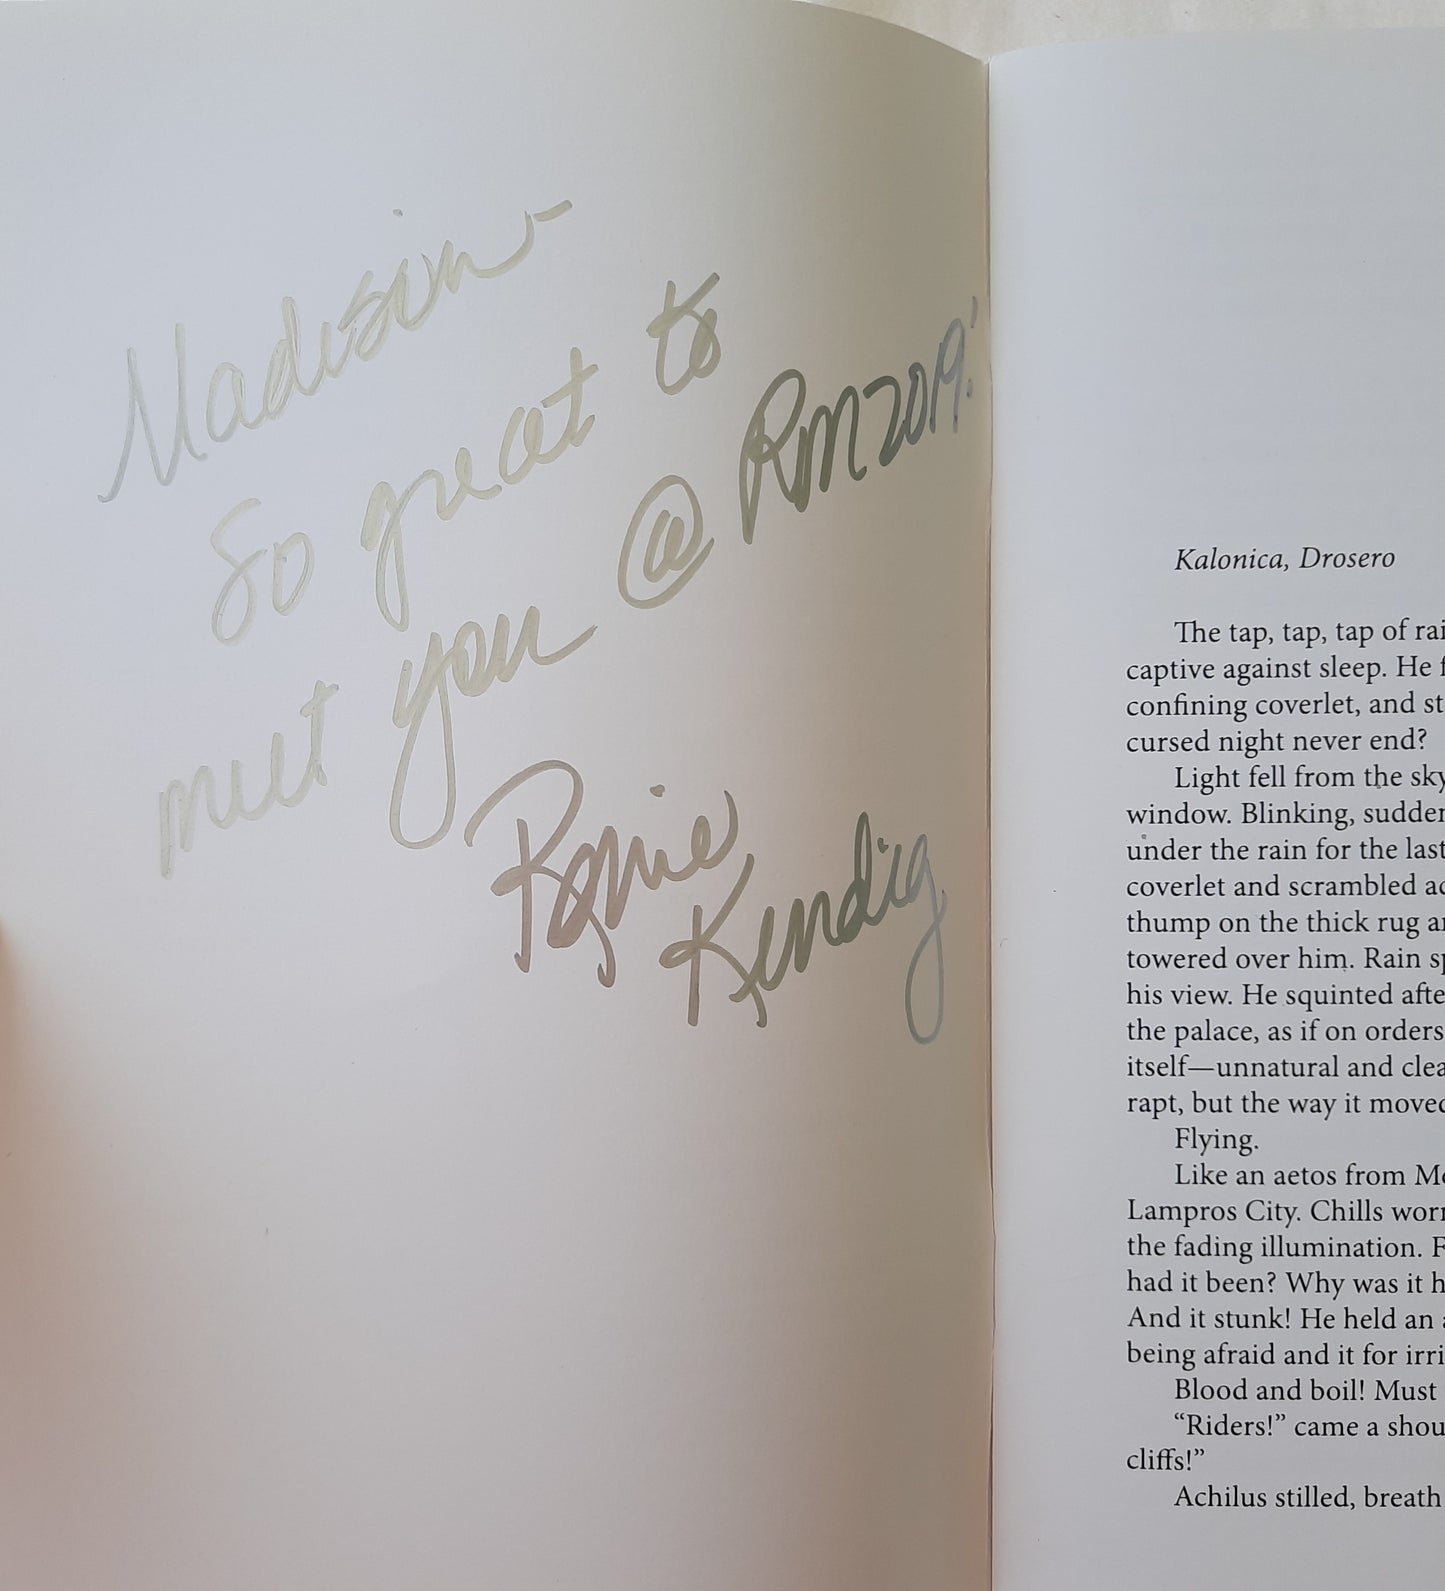 Madison-
So great to
meet you @ RM2019!
Ronie
Kendig
Kalonica, Drosero
The tap, tap, tap of rai
captive against sleep. He f
confining coverlet, and st
cursed night never end?
Light fell from the sky
window. Blinking, sudden
under the rain for the last
coverlet and scrambled ac
thump on the thick rug an
towered over him. Rain sp
his view. He squinted afte
the palace, as if on orders
itself—unnatural and clea
rapt, but the way it moved
Flying.
Like an aetos from Mo
Lampros City. Chills worm
the fading illumination. F
had it been? Why was it h
And it stunk! He held an a
being afraid and it for irri
Blood and boil! Must
“Riders!” came a shou
cliffs!”
Achilus stilled, breath